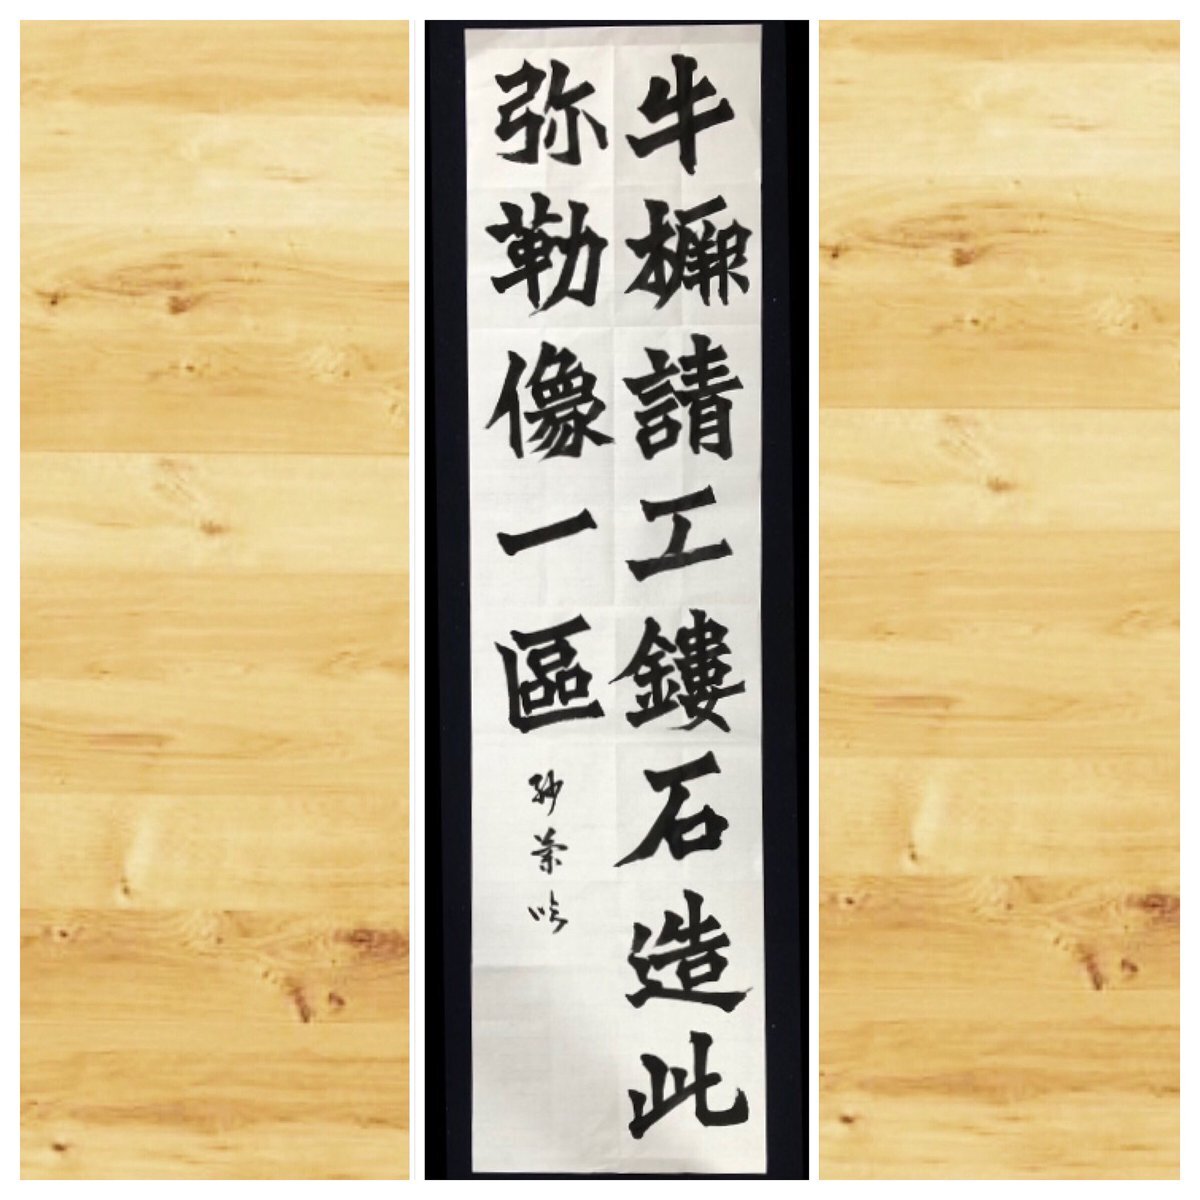 牛橛請工鏤石造此
弥勒像一區